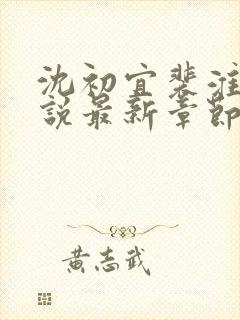 沈初宜裴淮
說最新章節
黃志武